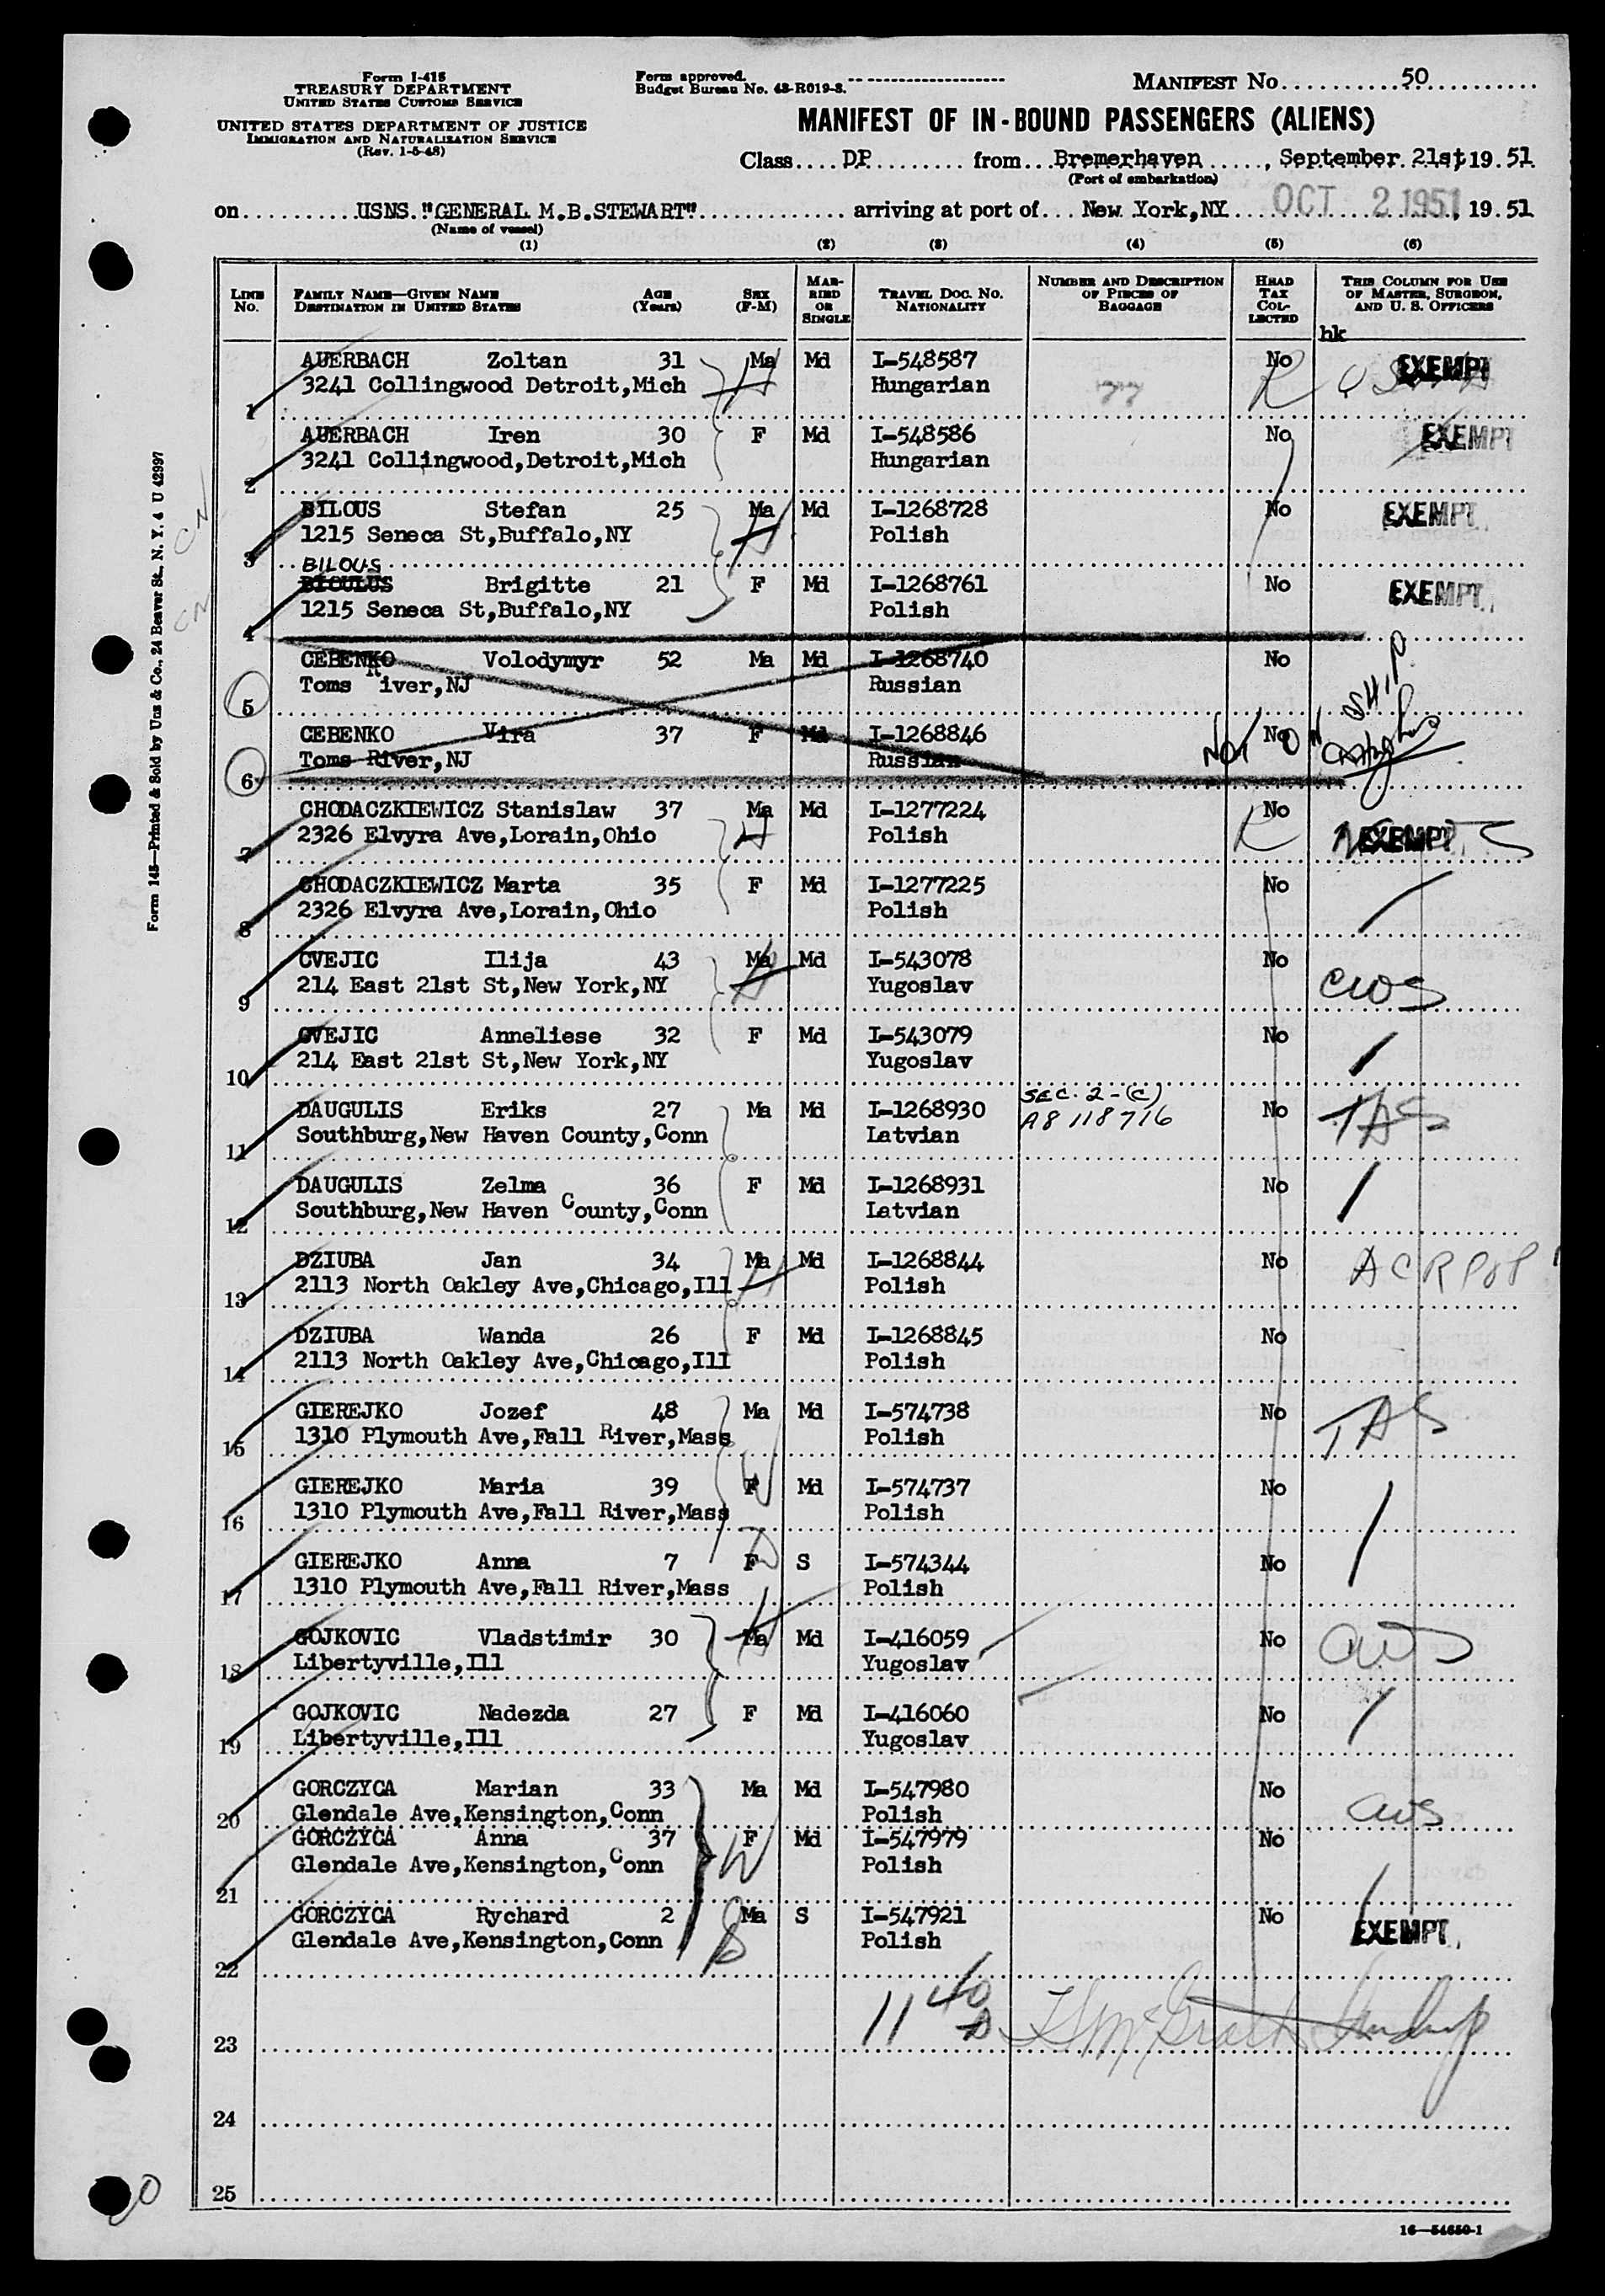 Form I-415
TREASURY DEPARTMENT
UNITED STATES CUSTOMS SERVICE
UNITED STATES DEPARTMENT OF JUSTICE
IMMIGRATION AND NATURALIZATION SERVICE
(Rev. 1-5-48)
Form approved.
Budget Bureau No. 43-R019-3.
MANIFEST No. 50
MANIFEST OF IN-BOUND PASSENGERS (ALIENS)
Class DP from Bremerhaven, September 21st, 19 51
(Port of embarkation)
on USNS."GENERAL M.B.STEWART" arriving at port of New York,NY OCT 2 1951, 19 51
(Name of vessel)
(1) (2) (3) (4) (5) (6)
LINE No. FAMILY NAME—GIVEN NAME DESTINATION IN UNITED STATES AGE (Years) SEX (F-M) MARRIED OR SINGLE TRAVEL DOC. NO. NATIONALITY NUMBER AND DESCRIPTION OF PIECES OF BAGGAGE HEAD TAX COLLECTED THIS COLUMN FOR USE OF MASTER, SURGEON, AND U. S. OFFICERS
hk
AUERBACH Zoltan 31 Ma Md I-548587 No EXEMPT
1 3241 Collingwood Detroit,Mich Hungarian 77
AUERBACH Iren 30 F Md I-548586 No EXEMPT
2 3241 Collingwood,Detroit,Mich Hungarian
BILOUS Stefan 25 Ma Md I-1268728 No EXEMPT
3 1215 Seneca St,Buffalo,NY Polish
BILOUS
BIOULUS Brigitte 21 F Md I-1268761 No EXEMPT
4 1215 Seneca St,Buffalo,NY Polish
CEBENKO Volodymyr 52 Ma Md I-1268740 No
5 Toms River,NJ Russian
CEBENKO Vira 37 F Md I-1268846 No NOT ON SHIP
6 Toms River,NJ Russian
CHODACZKIEWICZ Stanislaw 37 Ma Md I-1277224 No
7 2326 Elvyra Ave,Lorain,Ohio Polish EXEMPT
CHODACZKIEWICZ Marta 35 F Md I-1277225 No
8 2326 Elvyra Ave,Lorain,Ohio Polish
CVEJIC Ilija 43 Ma Md I-543078 No
9 214 East 21st St,New York,NY Yugoslav CWS
CVEJIC Anneliese 32 F Md I-543079 No
10 214 East 21st St,New York,NY Yugoslav
SEC. 2-(C)
DAUGULIS Eriks 27 Ma Md I-1268930 A8 118716 No IAS
11 Southburg,New Haven County,Conn Latvian
DAUGULIS Zelma 36 F Md I-1268931 No
12 Southburg,New Haven County,Conn Latvian
DZIUBA Jan 34 Ma Md I-1268844 No
13 2113 North Oakley Ave,Chicago,Ill Polish
DZIUBA Wanda 26 F Md I-1268845 No
14 2113 North Oakley Ave,Chicago,Ill Polish
GIEREJKO Jozef 48 Ma Md I-574738 No IAS
15 1310 Plymouth Ave,Fall River,Mass Polish
GIEREJKO Maria 39 F Md I-574737 No
16 1310 Plymouth Ave,Fall River,Mass Polish
GIEREJKO Anna 7 F S I-574344 No
17 1310 Plymouth Ave,Fall River,Mass Polish
GOJKOVIC Vladstimir 30 Ma Md I-416059 No CWS
18 Libertyville,Ill Yugoslav
GOJKOVIC Nadezda 27 F Md I-416060 No
19 Libertyville,Ill Yugoslav
GORCZYCA Marian 33 Ma Md I-547980 No
20 Glendale Ave,Kensington,Conn Polish CWS
GORCZYCA Anna 37 F Md I-547979 No
21 Glendale Ave,Kensington,Conn Polish
GORCZYCA Rychard 2 Ma S I-547921 No EXEMPT
22 Glendale Ave,Kensington,Conn Polish
11 40
23
24
25
16—54650-1
Form 145—Printed & Sold by Unz & Co., 24 Beaver St., N. Y. 4 U 42997
CN
CN